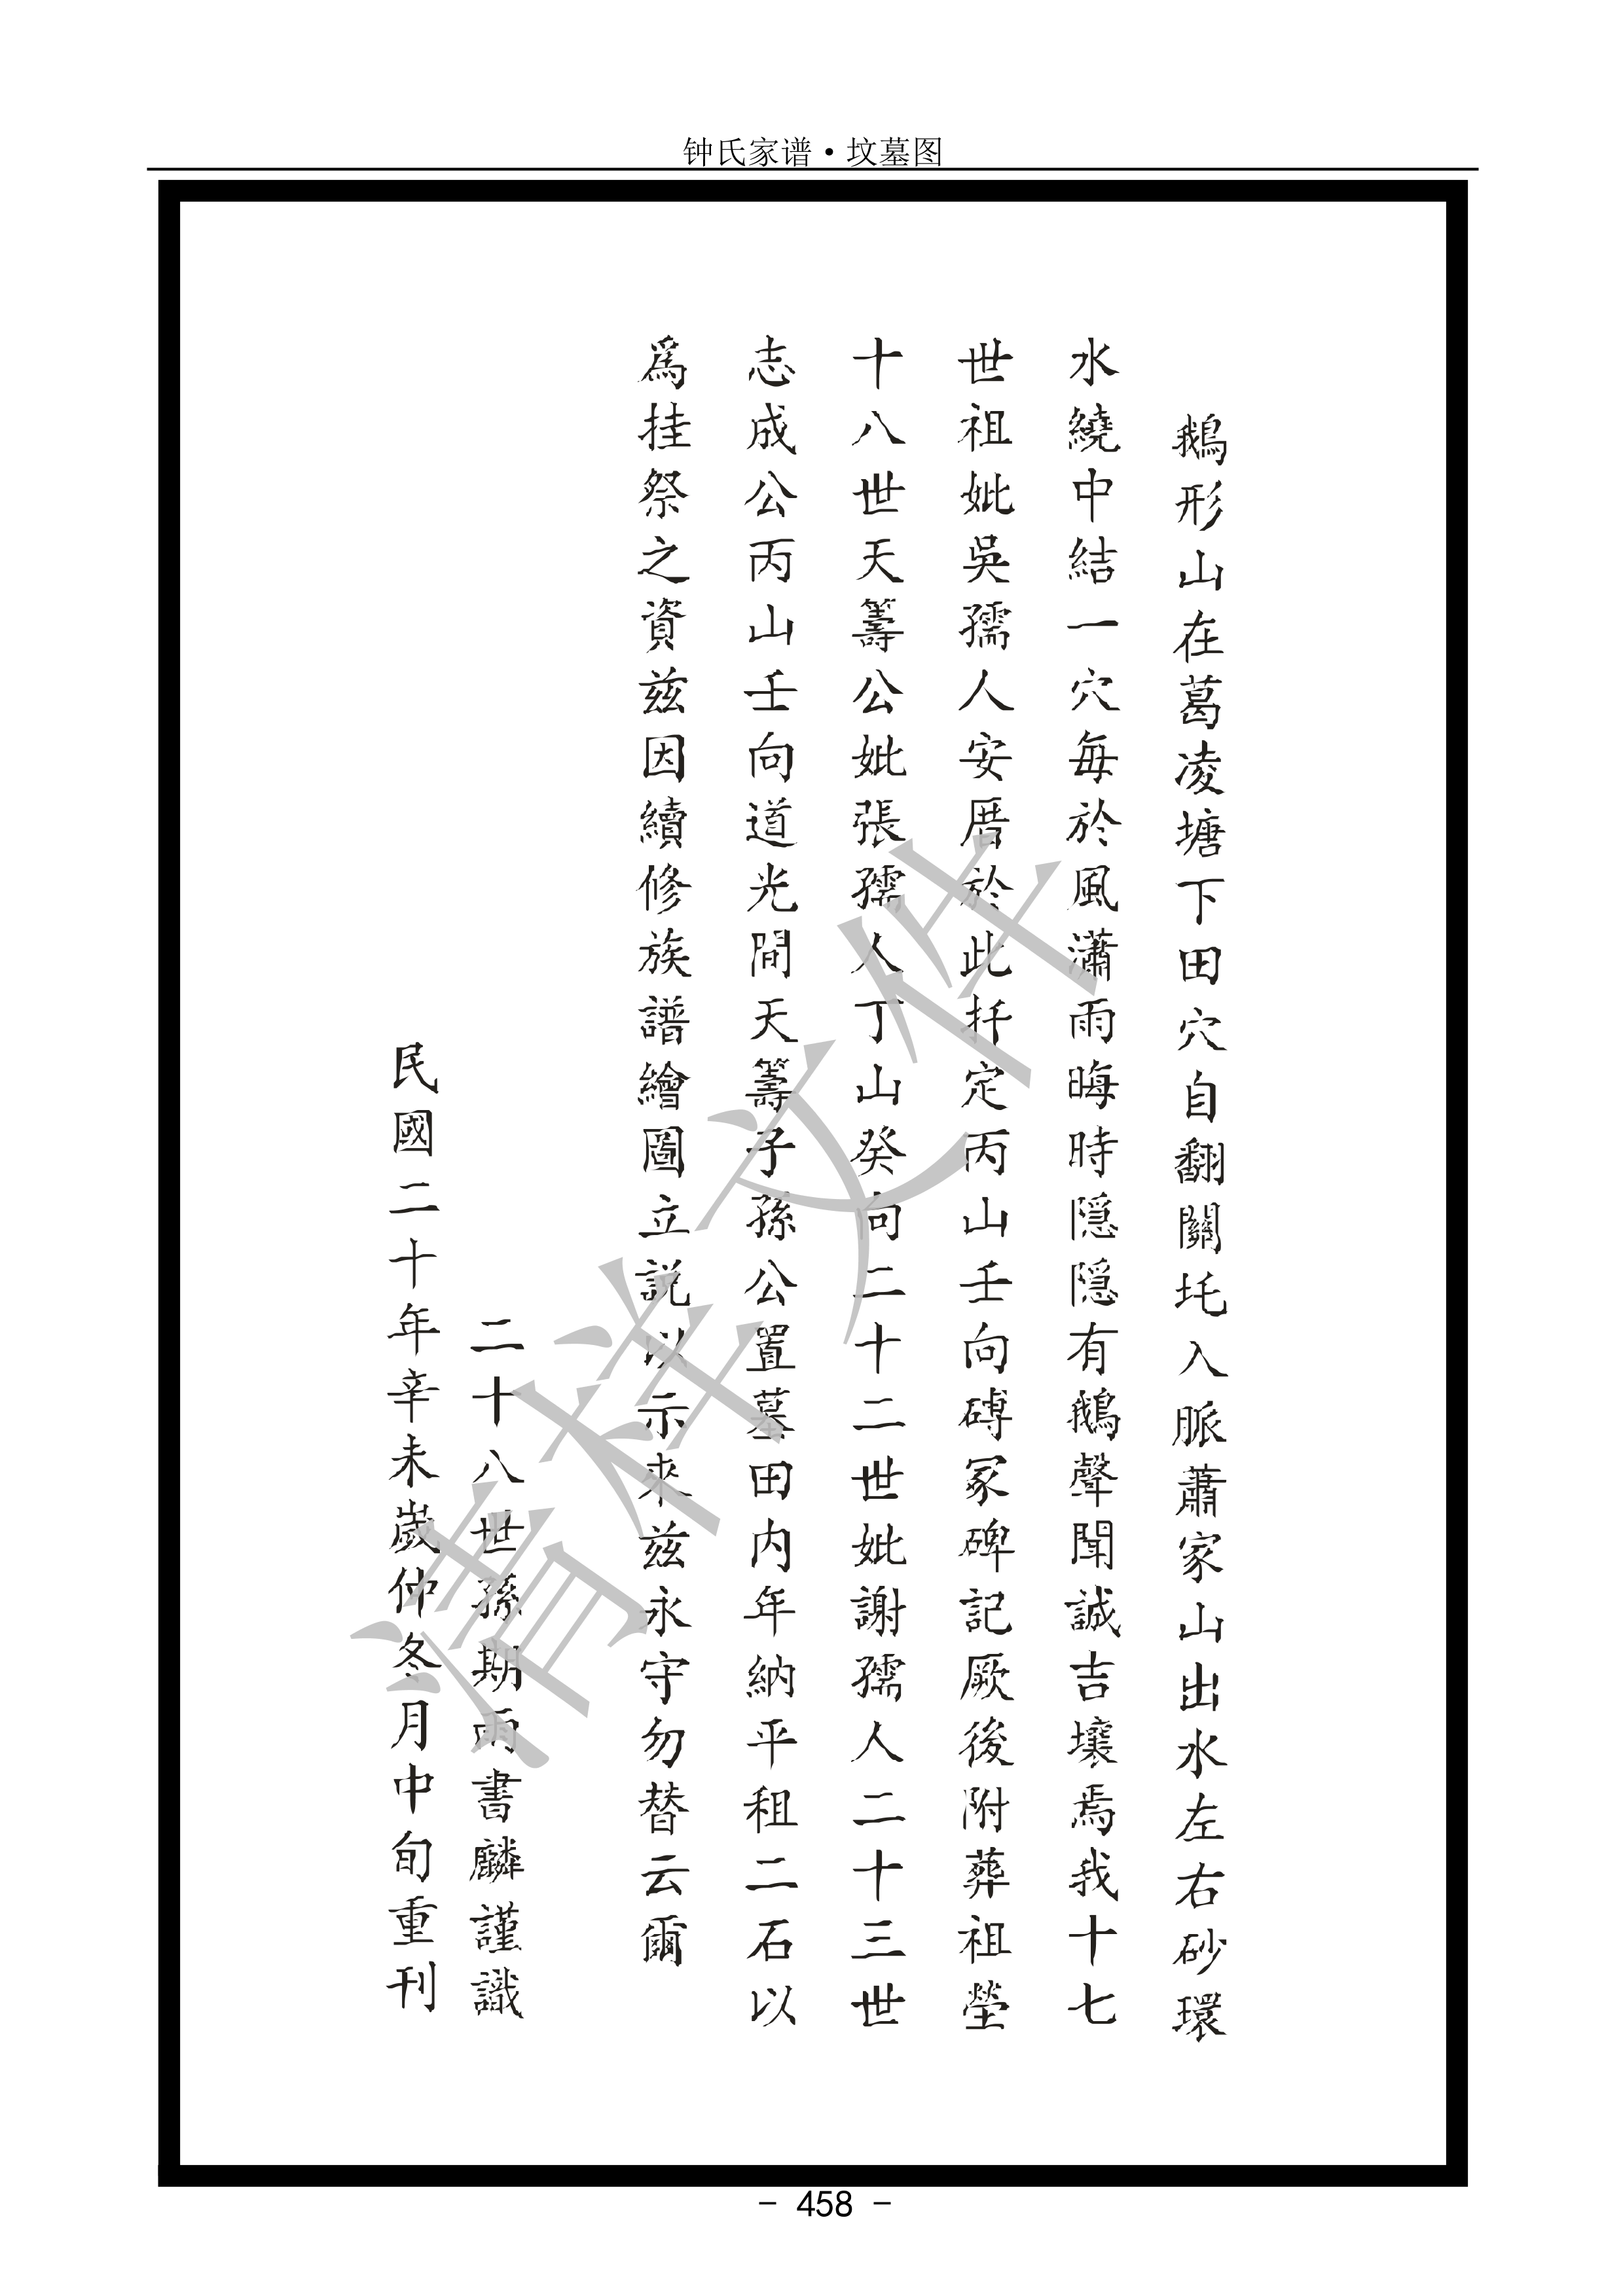 钟氏家谱·坟墓图
鵝形山在葛凌塘下田穴自翻關圫入脈蕭家山出水左右砂環
水繞中結一穴每於風瀟雨晦時隱隱有鵝聲聞誠吉壤焉我十七
世祖妣吳孺人安厝於此扦定丙山壬向磚冢碑記厥後附葬祖塋
十八世天籌公妣張孺人丁山癸向二十二世妣謝孺人二十三世
志成公丙山壬向道光間天籌子孫公置墓田内年納平租二石以
爲挂祭之資兹因續修族譜繪圖立説以示來兹永守勿替云爾
二十八世孫期雨書麟謹識
民國二十年辛未歲仲冬月中旬重刊
清样文件
- 458 -